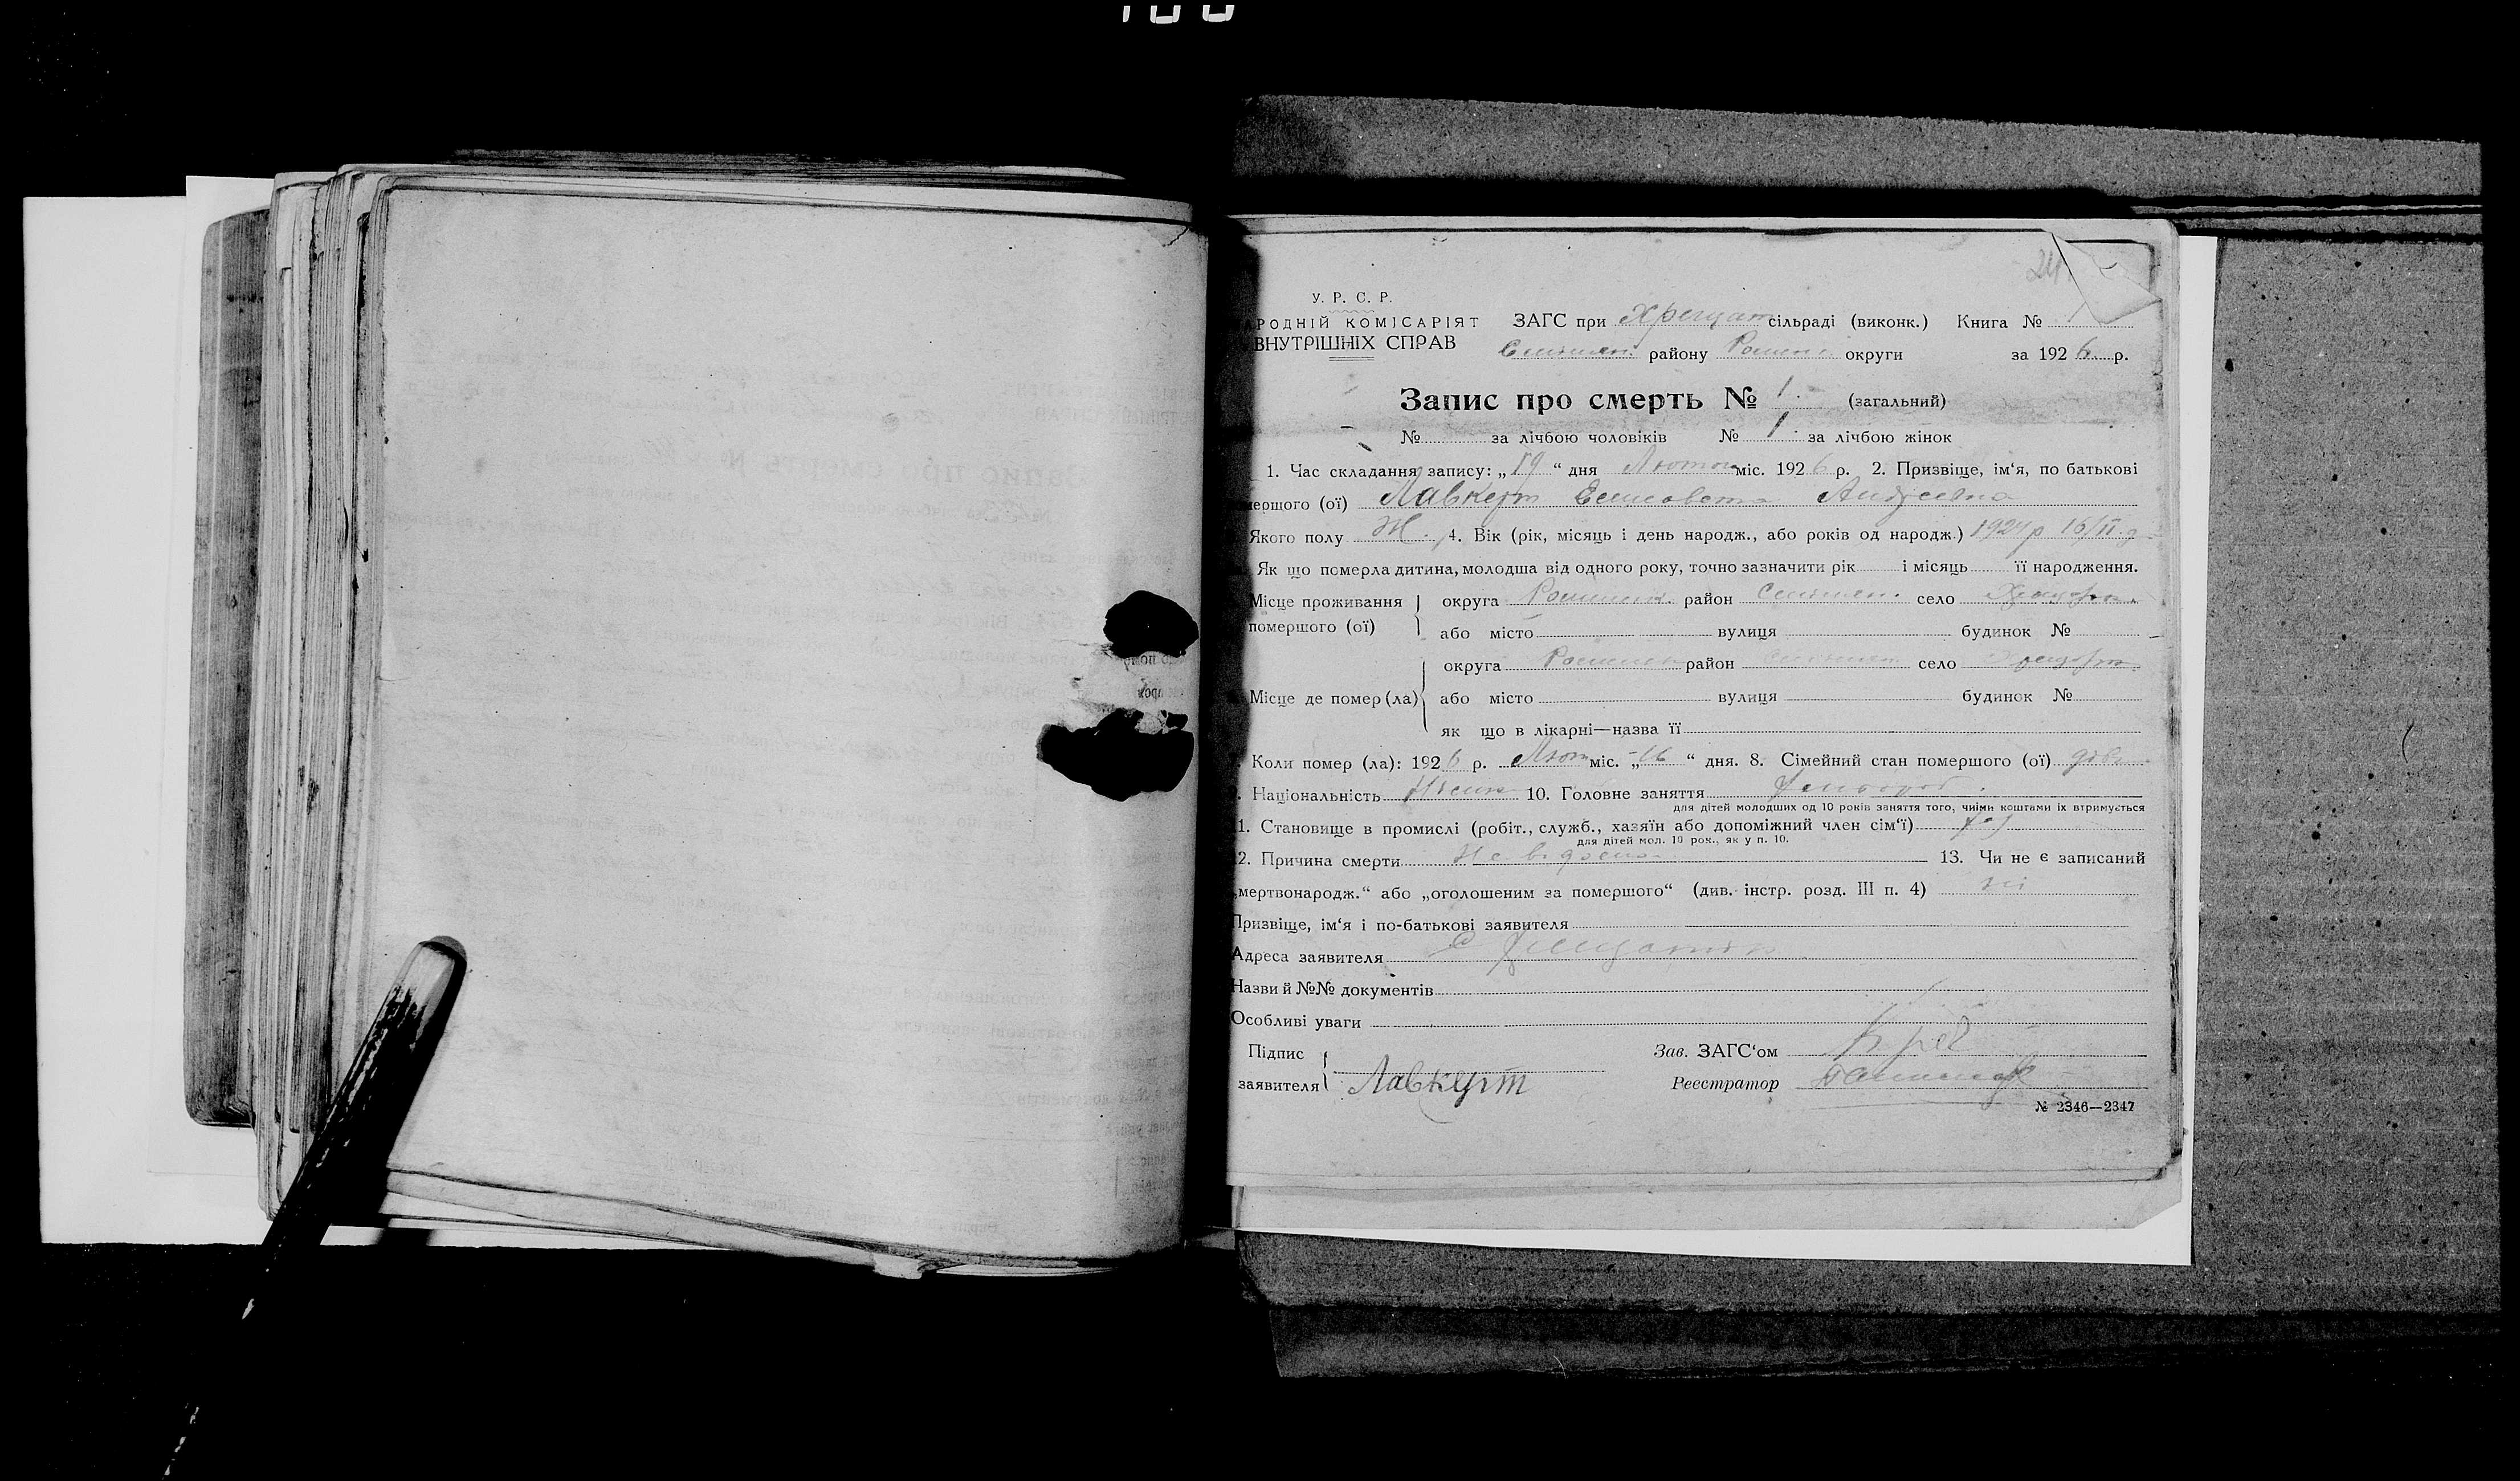 У. Р. С. Р.
АРОДНІЙ КОМІСАРІЯТ ЗАГС при Хрещат сільраді (виконк.) Книга №
ВНУТРІШНІХ СПРАВ району Ромен округи за 1926 р.
Запис про смерть № 1. (загальний)
№ за лічбою чоловіків № 1. за лічбою жінок
1. Час складання запису: „19“ дня Лютого міс. 1926 р. 2. Призвіще, ім‘я, по батькові
мершого (ої) Лавкерт Елисовета Андреевна
Якого полу Ж. 4. Вік (рік, місяць і день народж., або років од народж.) 1924 р 16/II
Як що померла дитина, молодша від одного року, точно зазначити рік і місяць її народження.
Місце проживання округа Роменськ. район село
помершого (ої) або місто вулиця будинок №
округа Роменськ район село
Місце де помер (ла) або місто вулиця будинок №
як що в лікарні—назва її
Коли помер (ла): 1926 р. Лют міс. „16“ дня. 8. Сімейний стан помершого (ої)
Національність 10. Головне заняття
для дітей молодших од 10 років заняття того, чиїми коштами їх втримується
1. Становище в промислі (робіт., служб., хазяїн або допоміжний член сім‘ї)
для дітей мол. 10 рок., як у п. 10.
2. Причина смерти Не відомо 13. Чи не є записаний
„мертвонародж.“ або „оголошеним за помершого“ (див. інстр. розд. III п. 4) ні
Призвіще, ім‘я і по-батькові заявителя
Адреса заявителя
Назви й №№ документів
Особливі уваги
Підпис Зав. ЗАГС‘ом
заявителя Лавкерт Реєстратор
№ 2346—2347